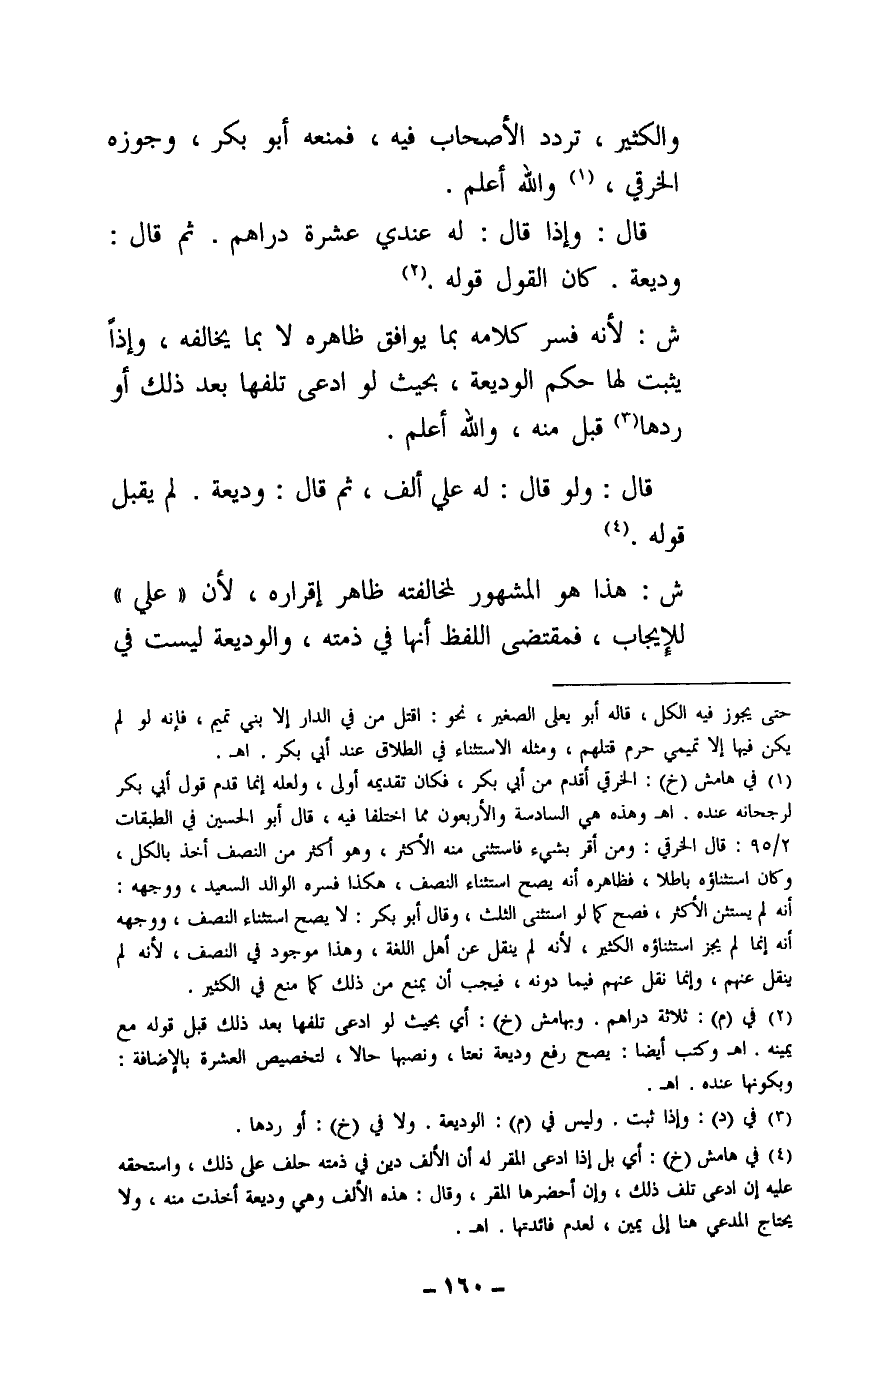 والكثير ، تردد الأصحاب فيه ، فمنعه أبو بكر ، وجوزه
الخرقي ، (١) والله أعلم .
قال : وإذا قال : له عندي عشرة دراهم . ثم قال :
وديعة . كان القول قوله .(٢)
ش : لأنه فسر كلامه بما يوافق ظاهره لا بما يخالفه ، وإذاً
يثبت لها حكم الوديعة ، بحيث لو ادعى تلفها بعد ذلك أو
ردها(٣) قبل منه ، والله أعلم .
قال : ولو قال : له علي ألف ، ثم قال : وديعة . لم يقبل
قوله .(٤)
ش : هذا هو المشهور لمخالفته ظاهر إقراره ، لأن « علي »
للإيجاب ، فمقتضى اللفظ أنها في ذمته ، والوديعة ليست في
حتى يجوز فيه الكل ، قاله أبو يعلى الصغير ، نحو : اقتل من في الدار إلا بني تميم ، فإنه لو لم
يكن فيها إلا تميمي حرم قتلهم ، ومثله الاستثناء في الطلاق عند أبي بكر . اهـ .
(١) في هامش (خ) : الخرقي أقدم من أبي بكر ، فكان تقديمه أولى ، ولعله إنما قدم قول أبي بكر
لرجحانه عنده . اهـ وهذه هي السادسة والأربعون مما اختلفا فيه ، قال أبو الحسين في الطبقات
٩٥/٢ : قال الخرقي : ومن أقر بشيء فاستثنى منه الأكثر ، وهو أكثر من النصف أخذ بالكل ،
وكان استثناؤه باطلا ، فظاهره أنه يصح استثناء النصف ، هكذا فسره الوالد السعيد ، ووجهه :
أنه لم يستثن الأكثر ، فصح كما لو استثنى الثلث ، وقال أبو بكر : لا يصح استثناء النصف ، ووجهه
أنه إنما لم يجز استثناؤه الكثير ، لأنه لم ينقل عن أهل اللغة ، وهذا موجود في النصف ، لأنه لم
ينقل عنهم ، وإنما نقل عنهم فيما دونه ، فيجب أن يمنع من ذلك كما منع في الكثير .
(٢) في (م) : ثلاثة دراهم . وبهامش (خ) : أي بحيث لو ادعى تلفها بعد ذلك قبل قوله مع
يمينه . اهـ وكتب أيضا : يصح رفع وديعة نعتا ، ونصبها حالا ، لتخصيص العشرة بالإضافة :
وبكونها عنده . اهـ .
(٣) في (د) : وإذا ثبت . وليس في (م) : الوديعة . ولا في (خ) : أو ردها .
(٤) في هامش (خ) : أي بل إذا ادعى المقر له أن الألف دين في ذمته حلف على ذلك ، واستحقه
عليه إن ادعى تلف ذلك ، وإن أحضرها المقر ، وقال : هذه الألف وهي وديعة أخذت منه ، ولا
يحتاج المدعي هنا إلى يمين ، لعدم فائدتها . اهـ .
– ١٦٠ –